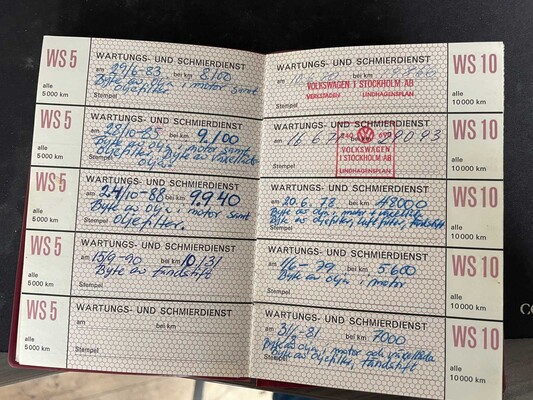 WS 5
alle
5 000 km
WARTUNGS- UND SCHMIERDIENST
am 29/6-83 bei km 8100
Byte av olja i motor samt
Stempel oljefilter
WS 5
alle
5 000 km
WARTUNGS- UND SCHMIERDIENST
am 28/10-85 bei km 9.100
Byte av olja i motor samt
oljefilter. Byte av
Stempel olja
WS 5
alle
5 000 km
WARTUNGS- UND SCHMIERDIENST
am 24/10-88 bei km 9.940
Byte av olja i motor samt
Stempel oljefilter.
WS 5
alle
5 000 km
WARTUNGS- UND SCHMIERDIENST
am 15/9-90 bei km 10.131
Byte av tändstift
Stempel
WS 5
alle
5 000 km
WARTUNGS- UND SCHMIERDIENST
am bei km
Stempel
WARTUNGS- UND SCHMIERDIENST
am bei km
VOLKSWAGEN I STOCKHOLM AB
VERKSTADEN LINDHAGENSPLAN
Stempel
WS 10
alle
10 000 km
WARTUNGS- UND SCHMIERDIENST
am 16.6.7 bei km
VOLKSWAGEN
I STOCKHOLM AB
LINDHAGENSPLAN
Stempel
WS 10
alle
10 000 km
WARTUNGS- UND SCHMIERDIENST
am 20.6.78 bei km 48000
Byte av olja i motor
Byte av oljefilter, luftfilter, tändstift
Stempel
WS 10
alle
10 000 km
WARTUNGS- UND SCHMIERDIENST
am 79 bei km 5600
Byte av olja i motor
Stempel
WS 10
alle
10 000 km
WARTUNGS- UND SCHMIERDIENST
am 31/ -81 bei km 7000
Byte av olja i motor och växellåda
Byte av oljefilter, tändstift
Stempel
WS 10
alle
10 000 km
CO